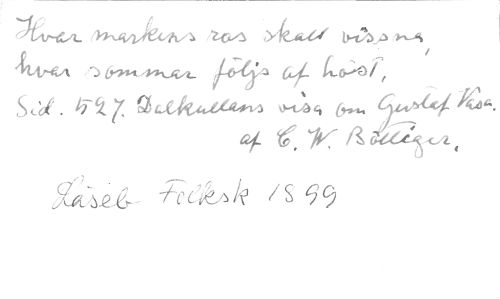 Hvar markens ros skall vissna,
hvar sommar följs af höst,
Sid. 527. Dalkullans visa om Gustaf Vasa.
af C. W. Böttiger.
Läseb Folksk 1899